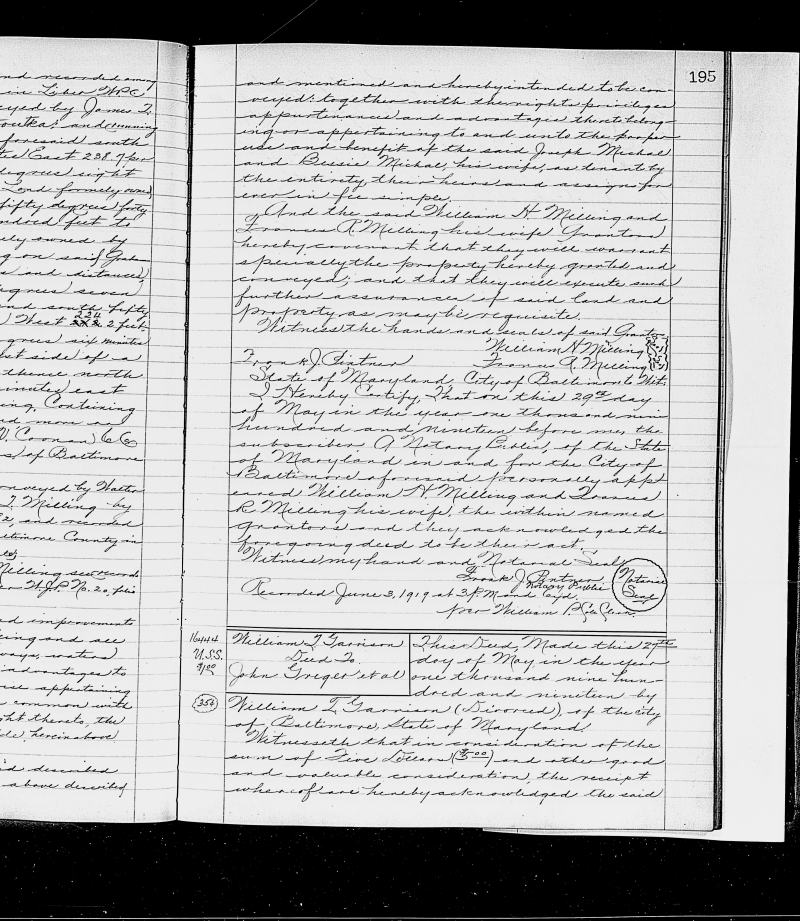 nd recorded among
in Liber WPC
eyed by James T.
and running
foresaid south
East 238.7 per
degrees eight
Land formerly owned
fifty degrees forty
ndred feet to
ly owned by
g on said
s and distances
egrees seven
nd south fifty
West 224 2 feet
grees six minutes
est side of a
thence north
inutes east
ing, Containing
nd more or
V. Coonan 66
s) of Baltimore
onveyed by Walter
T Milling by
2, and recorded
ltimore County in
Milling see record
er W.J.P. No. 20, folio
nd improvements
cing and all
ways, waters
advantages to
ise appertaining
common with
ght thereto, the
de, hereinabove
id described
above described
195
and mentioned and hereby intended to be con-
veyed: together with the rights privileges
appurtenances and advantages thereto belong-
ing or appertaining to and unto the proper
use and benefit of the said Joseph Michal
and Bessie Michal, his wife, as tenants by
the entirety, their heirs and assigns for
ever in fee simple.
And the said William H Milling and
Frances R. Milling his wife Grantors
hereby covenant that they will warrant
specially the property hereby granted and
conveyed; and that they will execute such
further assurances of said land and
property as may be requisite.
Witness the hands and seals of said Grantors
William H Milling
Frank J. Pintner Frances R. Milling
State of Maryland, City of Baltimore to Wit:
I Hereby Certify, That on this 29th day
of May in the year one thousand nine
hundred and nineteen before me, the
subscriber A Notary Public, of the State
of Maryland in and for the City of
Baltimore aforesaid personally app
eared William H. Milling and Frances
R. Milling his wife, the within named
grantors and they acknowledged the
foregoing deed to be their act.
Witness my hand and Notarial Seal
Frank J. Pintner
Notary Public
Notarial
Seal
Recorded June 3, 1919 at 3 P.M. and Exd.
Per William P. Cole Clerk.
16444
U.S.S.
$1.00
William T Garrison
Deed To
John Greger et al
This Deed, Made this 29th
day of May in the year
one thousand nine hun-
dred and nineteen by
356
William T. Garrison (Divorced), of the city
of Baltimore, State of Maryland.
Witnesseth that in consideration of the
sum of Five Dollars ($5.00) and other good
and valuable consideration, the receipt
whereof are hereby acknowledged the said